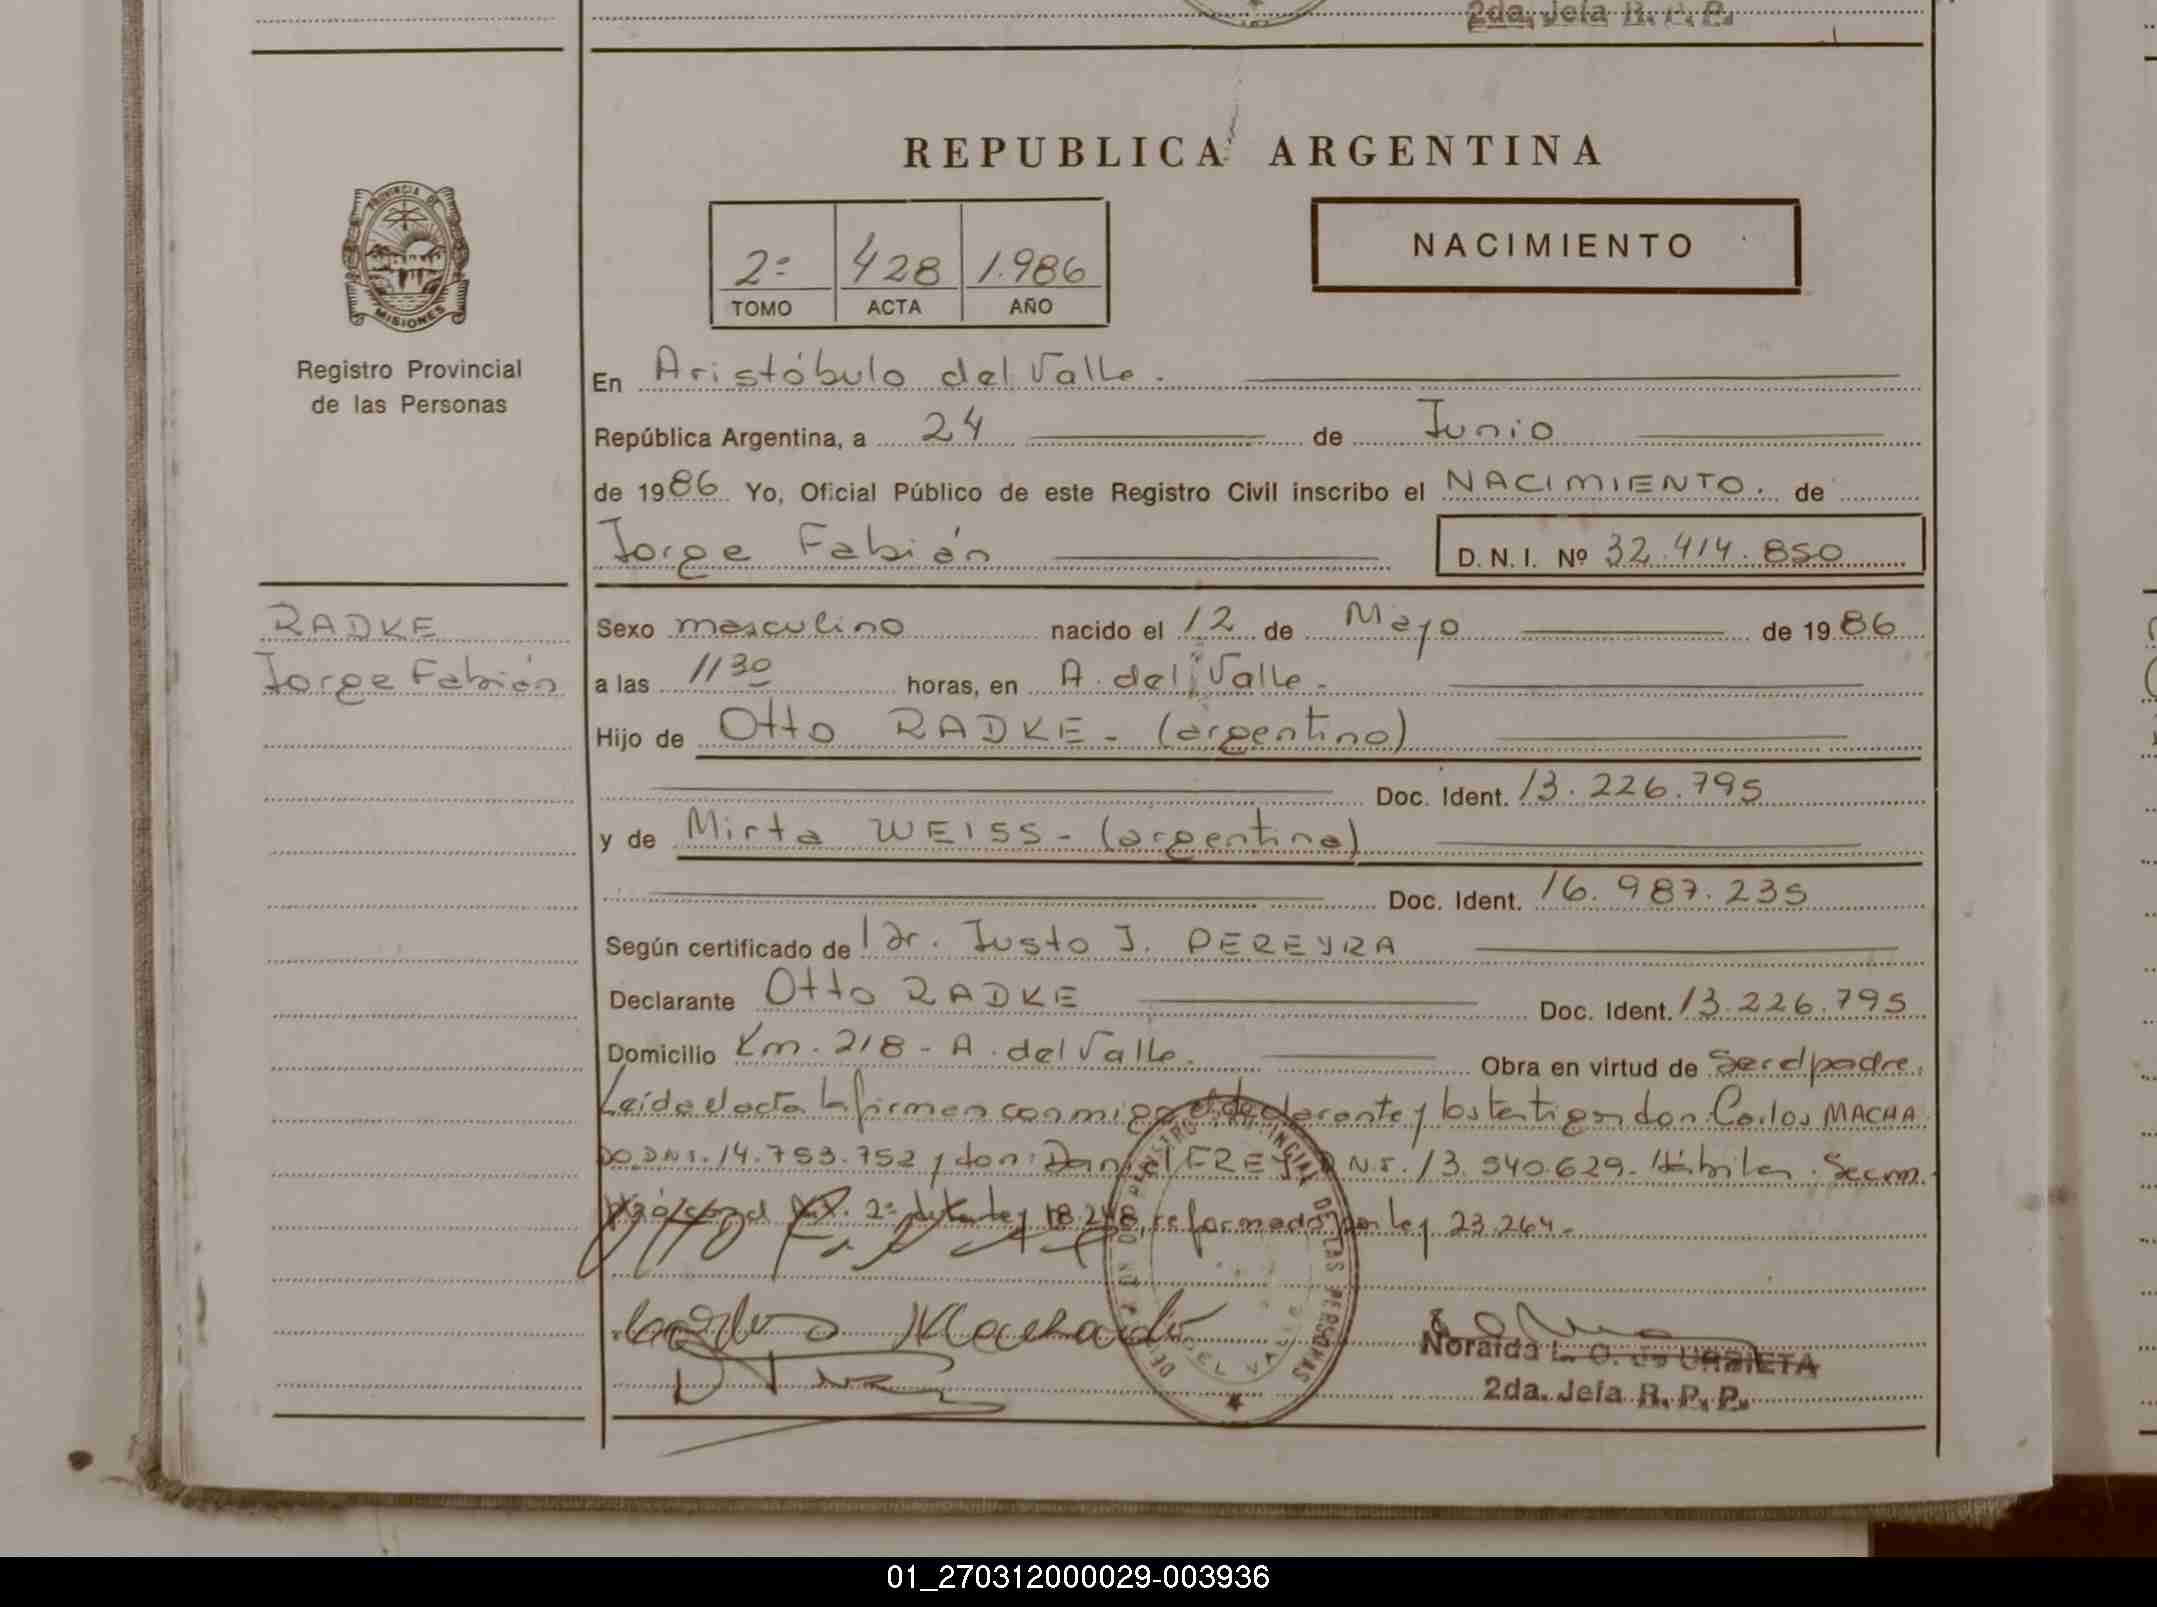 2da. Jefa R. P. P.
REPUBLICA ARGENTINA
PROVINCIA DE
MISIONES
Registro Provincial
de las Personas
2º 428 1.986
TOMO ACTA AÑO
NACIMIENTO
En Aristóbulo del Valle.
República Argentina, a 24 de Junio
de 1986 Yo, Oficial Público de este Registro Civil inscribo el NACIMIENTO. de
Jorge Fabián D. N. I. Nº 32.414.850
RADKE
Jorge Fabián
Sexo masculino nacido el 12 de Mayo de 1986
a las 11 30 horas, en A. del Valle.
Hijo de Otto RADKE - (argentino)
Doc. Ident. 13.226.795
y de Mirta WEISS - (argentina)
Doc. Ident. 16.987.235
Según certificado de Dr. Justo J. PEREYRA
Declarante Otto RADKE Doc. Ident. 13.226.795
Domicilio Km. 218 - A. del Valle. Obra en virtud de Ser el padre.
Leída el acta la firman conmigo el declarante y los testigos don: Carlos MACHA
DO DNI. 14.753.752 y don: Daniel FREY DNI. 13.540.629. Hábiles.
2º de la ley 18.248, reformado por ley 23.264.
Carlos Machado
REGISTRO PROVINCIAL DE LAS PERSONAS
DEL VALLE
Noraida L. O. de URBIETA
2da. Jefa R. P. P.
01_270312000029-003936